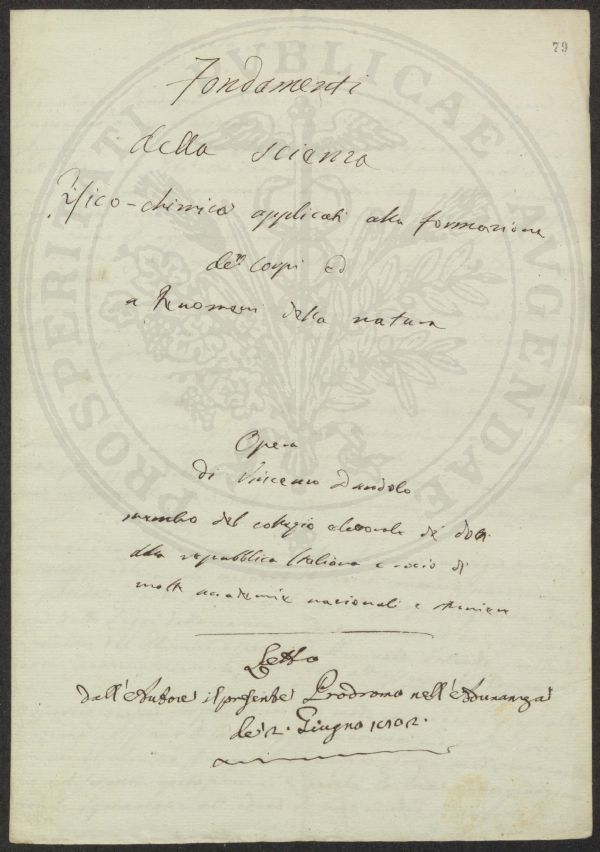 79
Fondamenti
della scienza
Fisico-chimica applicati alla formazione
de' corpi ed
a Fenomeni della natura
Opera
di Vincenzo Dandolo
membro del collegio elettorale de' dotti
della repubblica Italiana e socio di
molte accademie nazionali e straniere
Letto
dall'Autore il presente Prodromo nell'Adunanza
de' 2. Giugno 1802.
PROSPERITATI PVBLICAE AVGENDAE